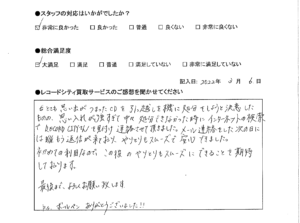 ●スタッフの対応はいかがでしたか?
☑非常に良かった □良かった □普通 □良くない □非常に良くない
●総合満足度
☑大満足 □満足 □普通 □満足していない □非常に満足していない
記入日: 2022年 2月 6日
●レコードシティ買取サービスのご感想を聞かせてください
とても思い出がつまったCDを引っ越しを機に処分せしようと決意した
ものの、思い入れが強すぎて中々処分できなかった時にインターネットの検索
で を見付け連絡させて頂きました。メール連絡をした次の日に
は 返信が来ており、やりとりもスムーズで 。
、この後のやりとりもスムーズにできることを期待
しております。
最後まで、よろしくお願い致します。
ボールペン ありがとうございました!!